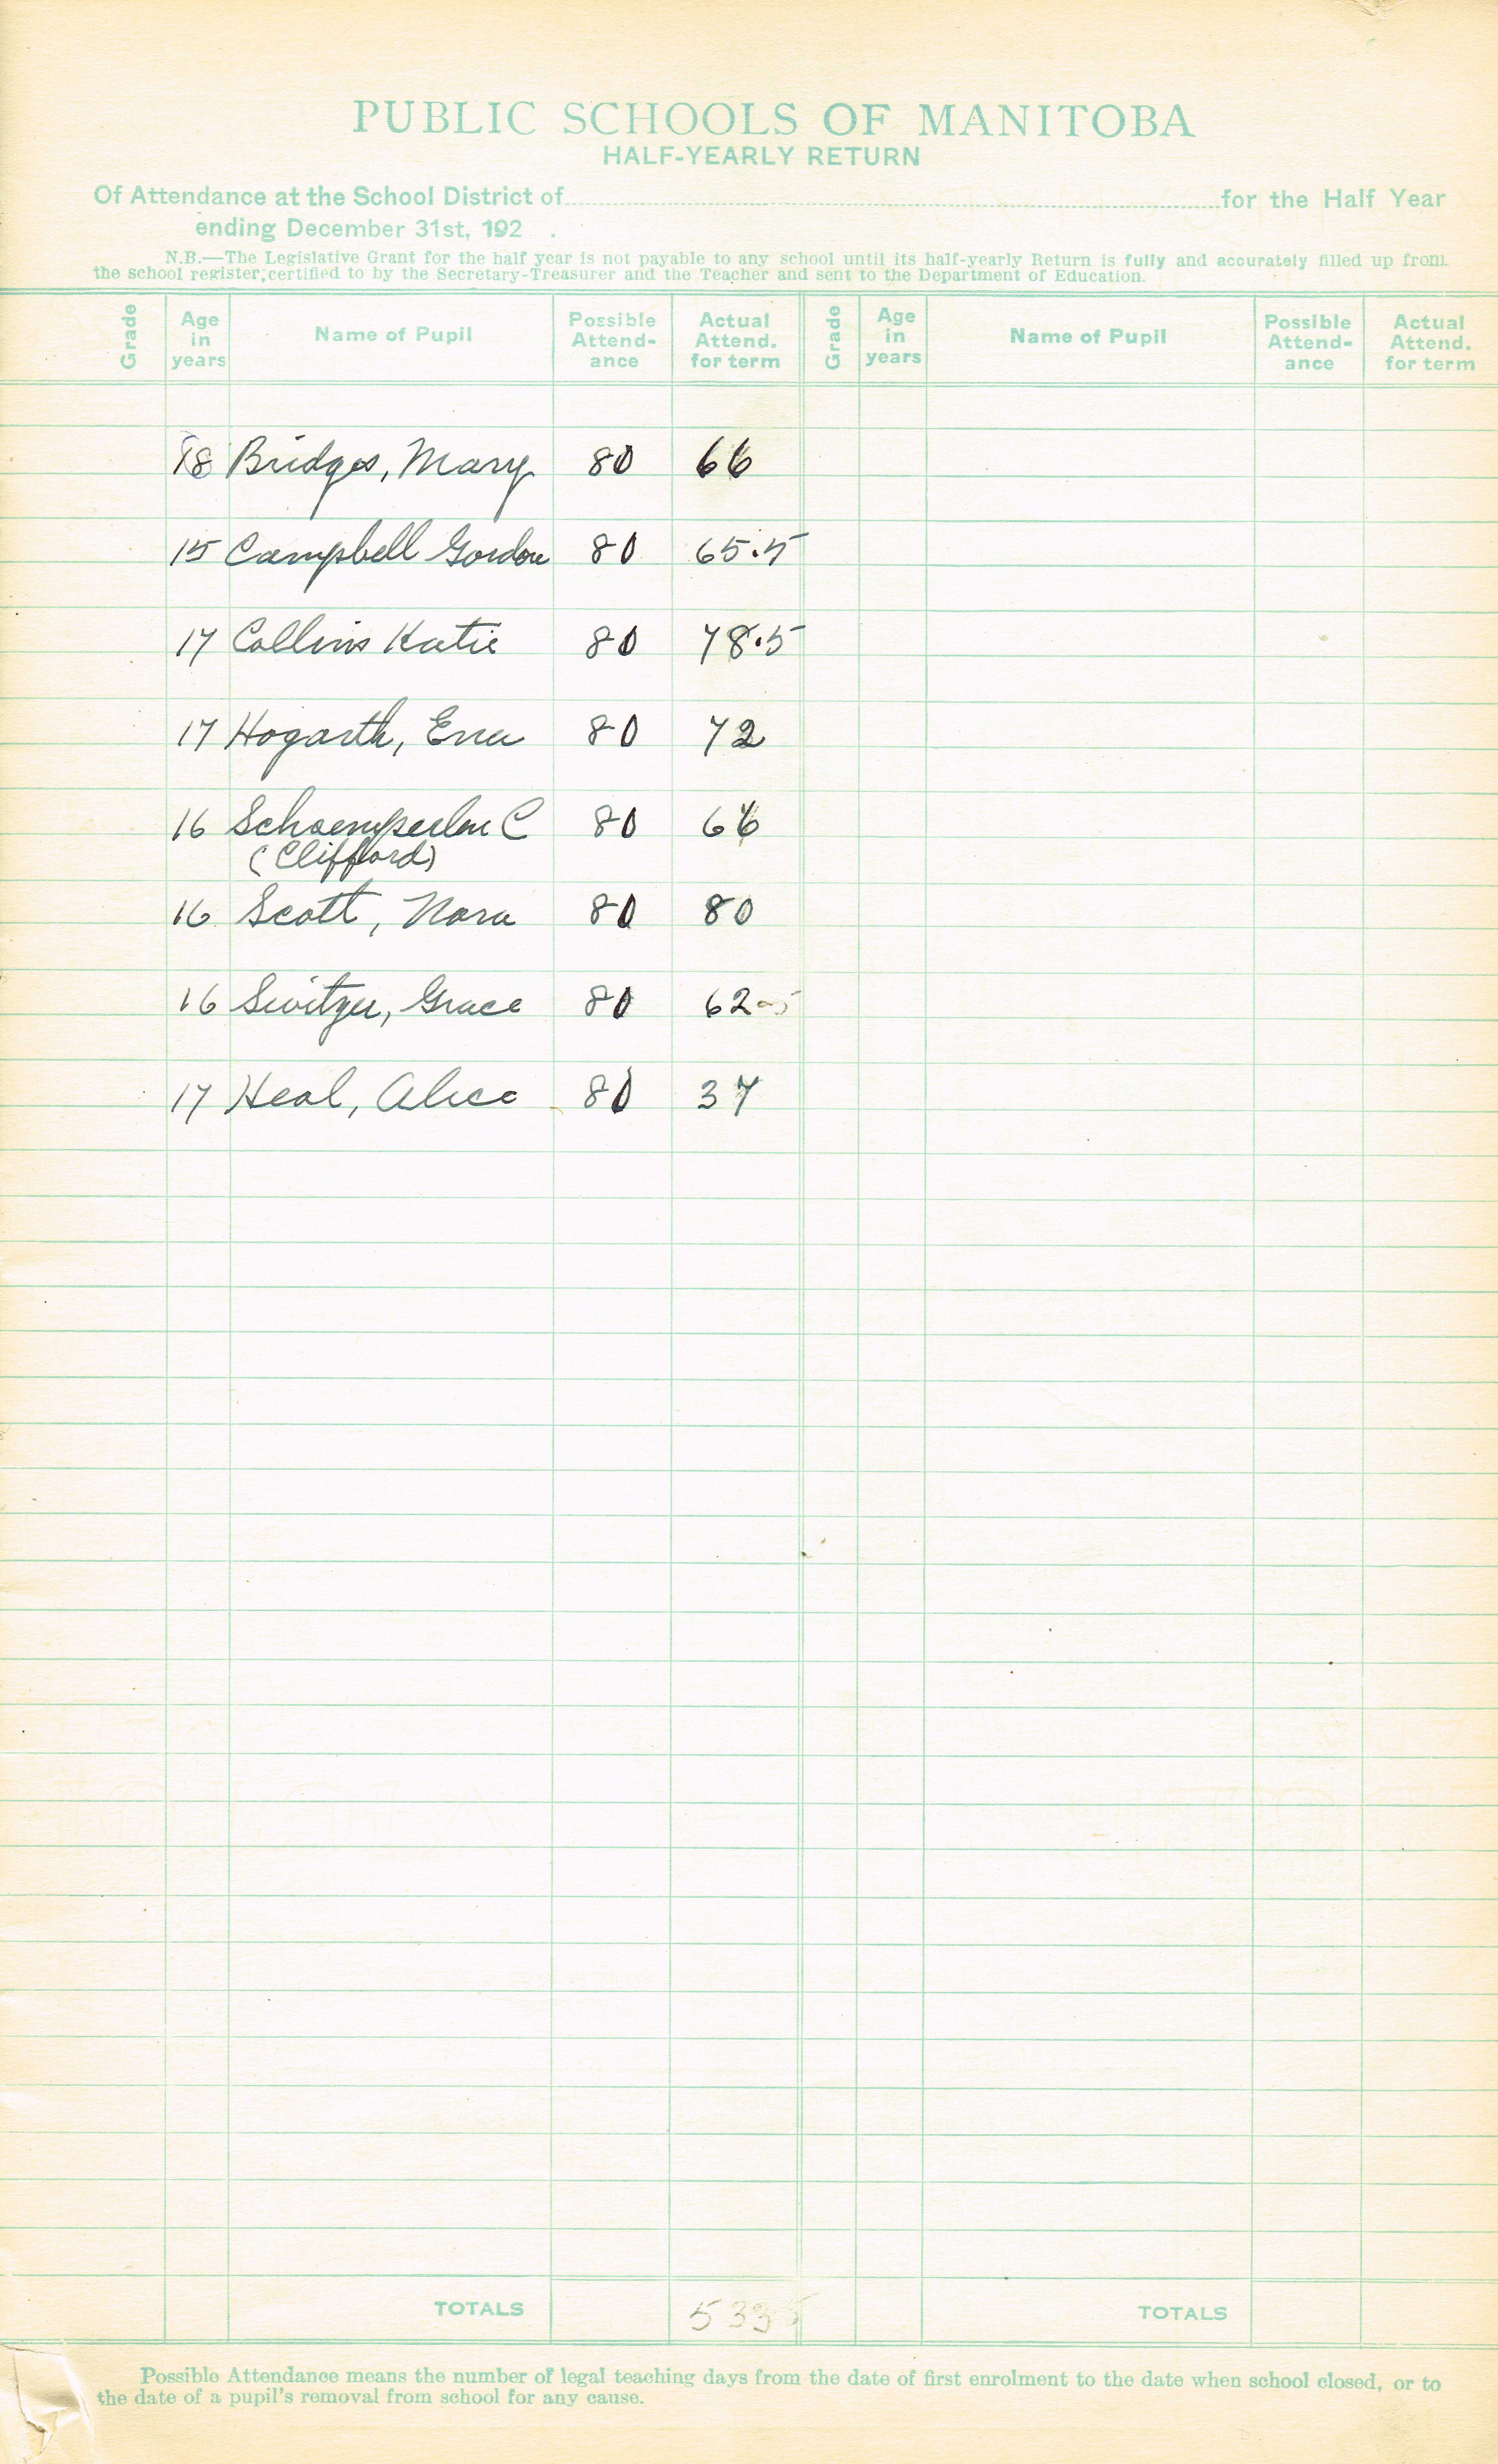 PUBLIC SCHOOLS OF MANITOBA
HALF-YEARLY RETURN
Of Attendance at the School District of for the Half Year
ending December 31st, 192 .
N.B.—The Legislative Grant for the half year is not payable to any school until its half-yearly Return is fully and accurately filled up from
the school register, certified to by the Secretary-Treasurer and the Teacher and sent to the Department of Education.
Grade Age in years Name of Pupil Possible Attend-ance Actual Attend. for term Grade Age in years Name of Pupil Possible Attend-ance Actual Attend. for term
18 Bridges, Mary 80 66
15 Campbell Gordon 80 65.5
17 Collins Katie 80 78.5
17 Hogarth, Ena 80 72
16 Schoemperlen C 80 66
(Clifford)
16 Scott, Nora 80 80
16 Switzer, Grace 80 62.5
17 Heal, Alice 80 37
TOTALS TOTALS
Possible Attendance means the number of legal teaching days from the date of first enrolment to the date when school closed, or to
the date of a pupil's removal from school for any cause.